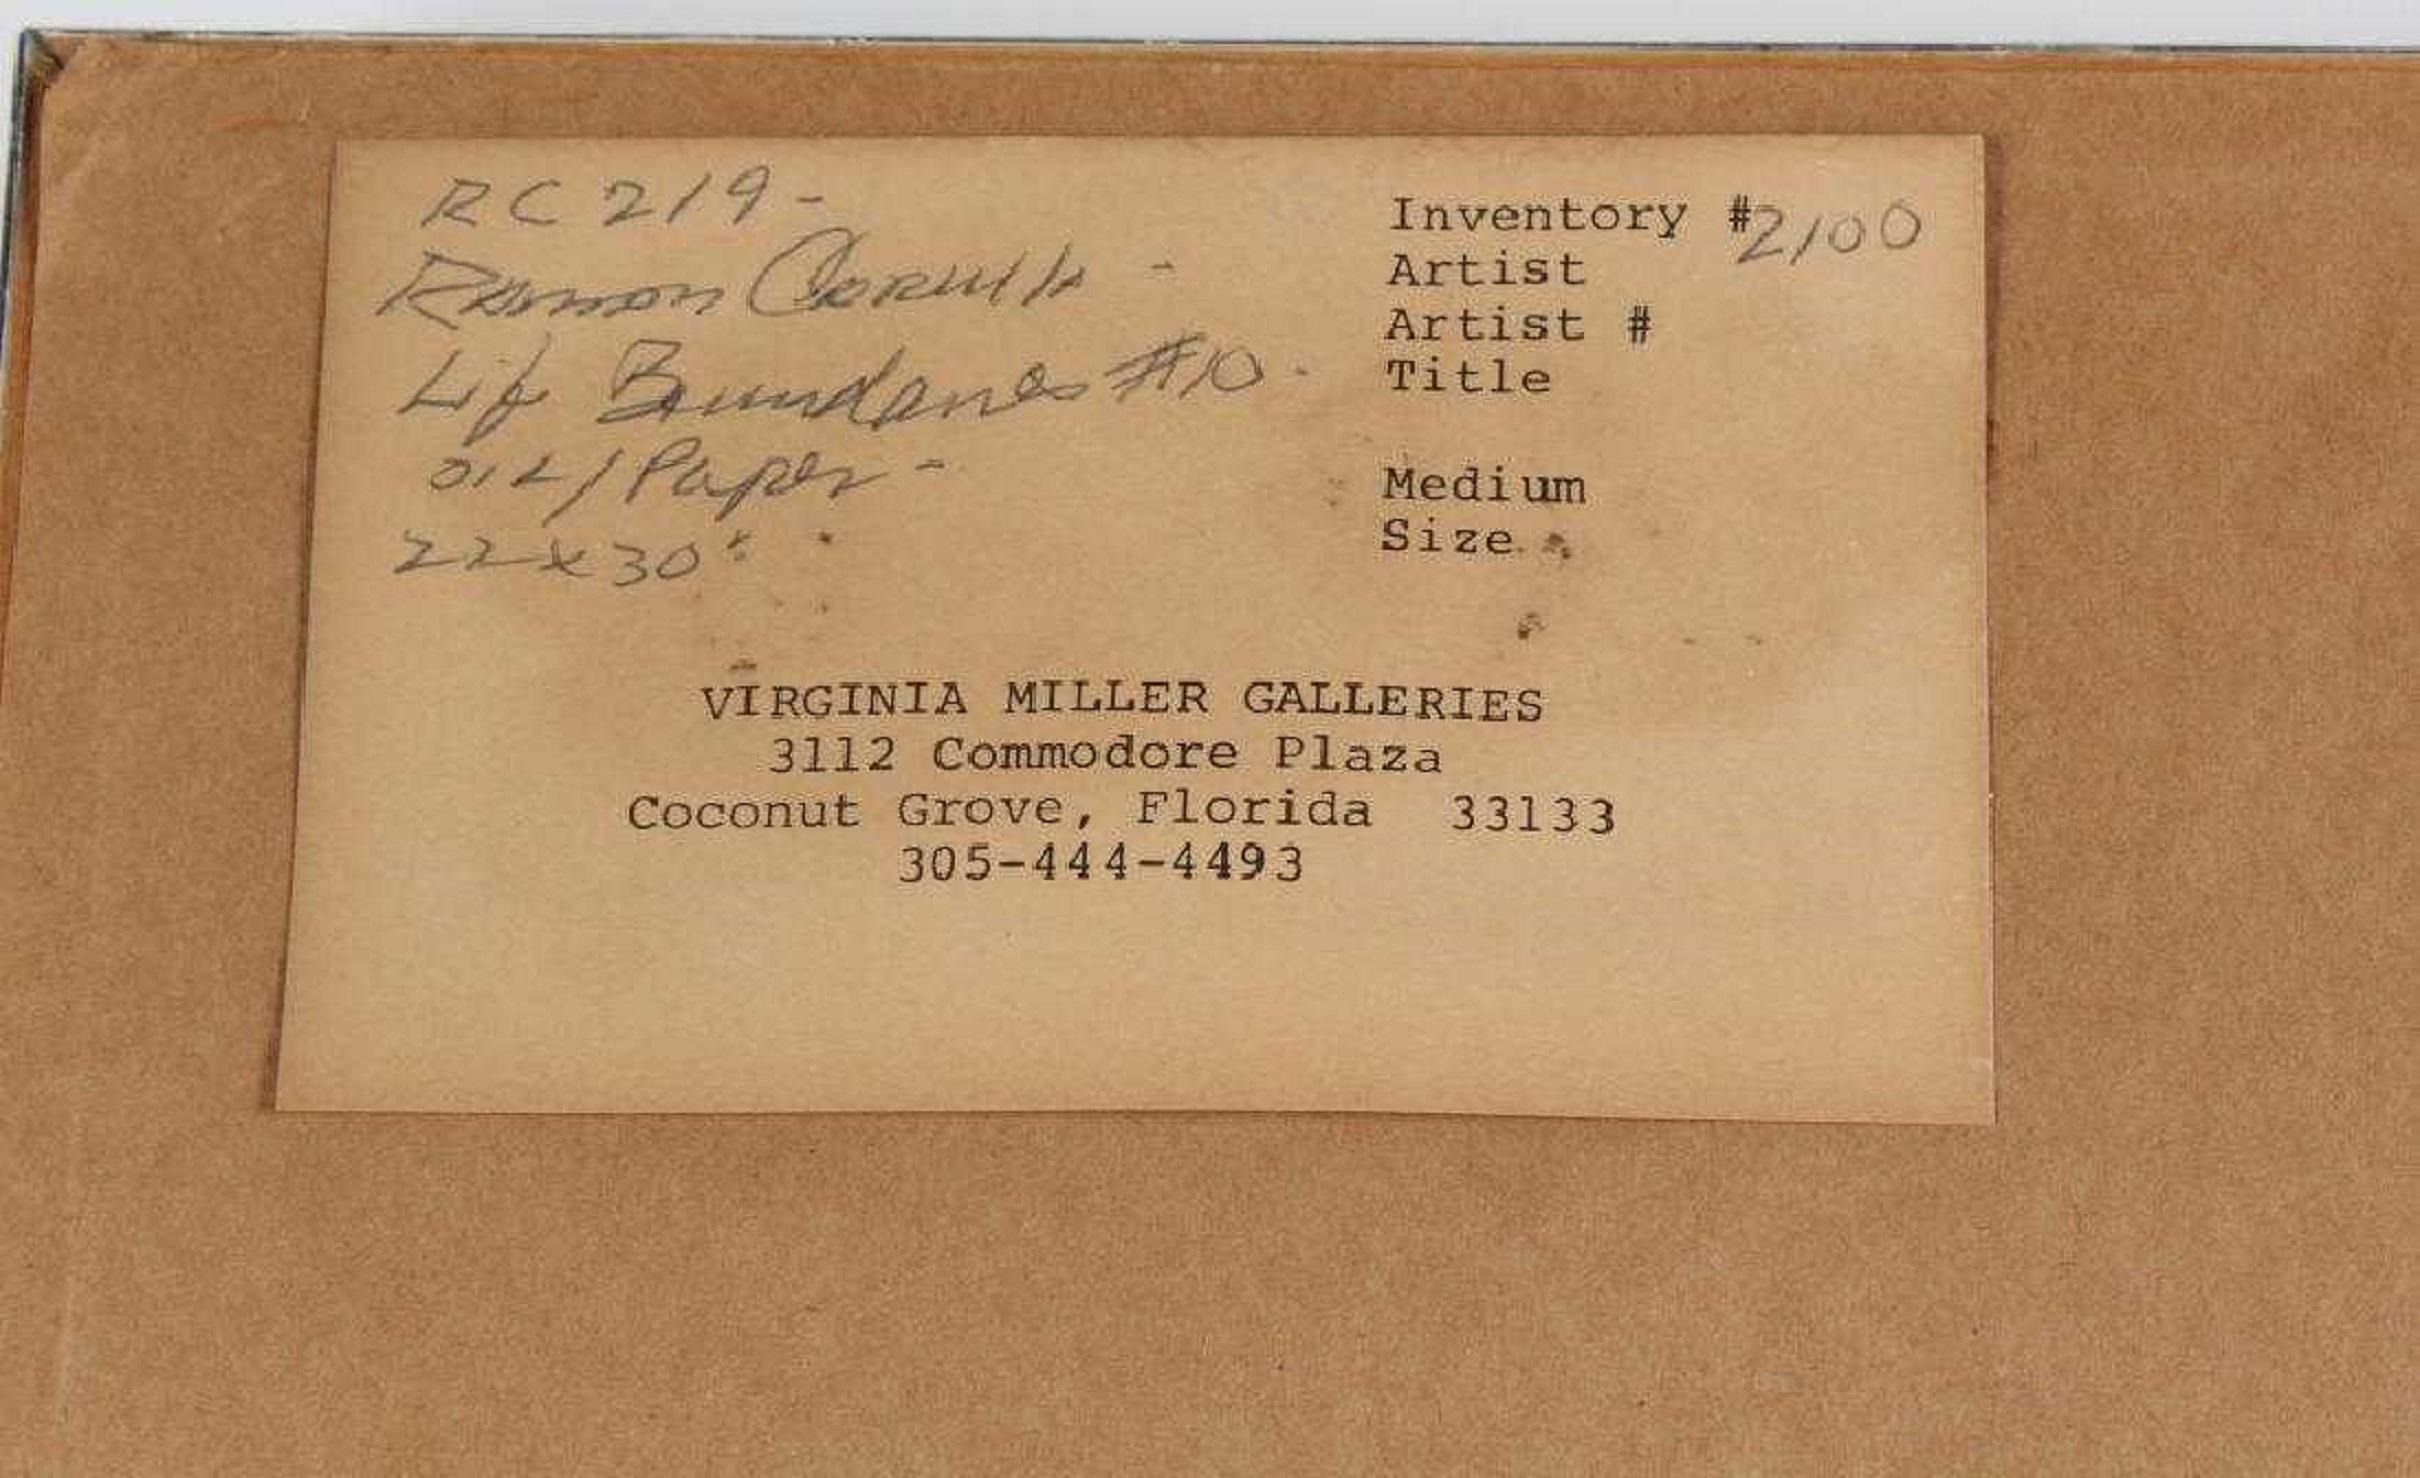 RC 219 -
Ramon Carulla -
Life Boundaries #10 -
OIL / Paper -
22 x 30"
Inventory # 2100
Artist
Artist #
Title
Medium
Size
VIRGINIA MILLER GALLERIES
3112 Commodore Plaza
Coconut Grove, Florida 33133
305-444-4493